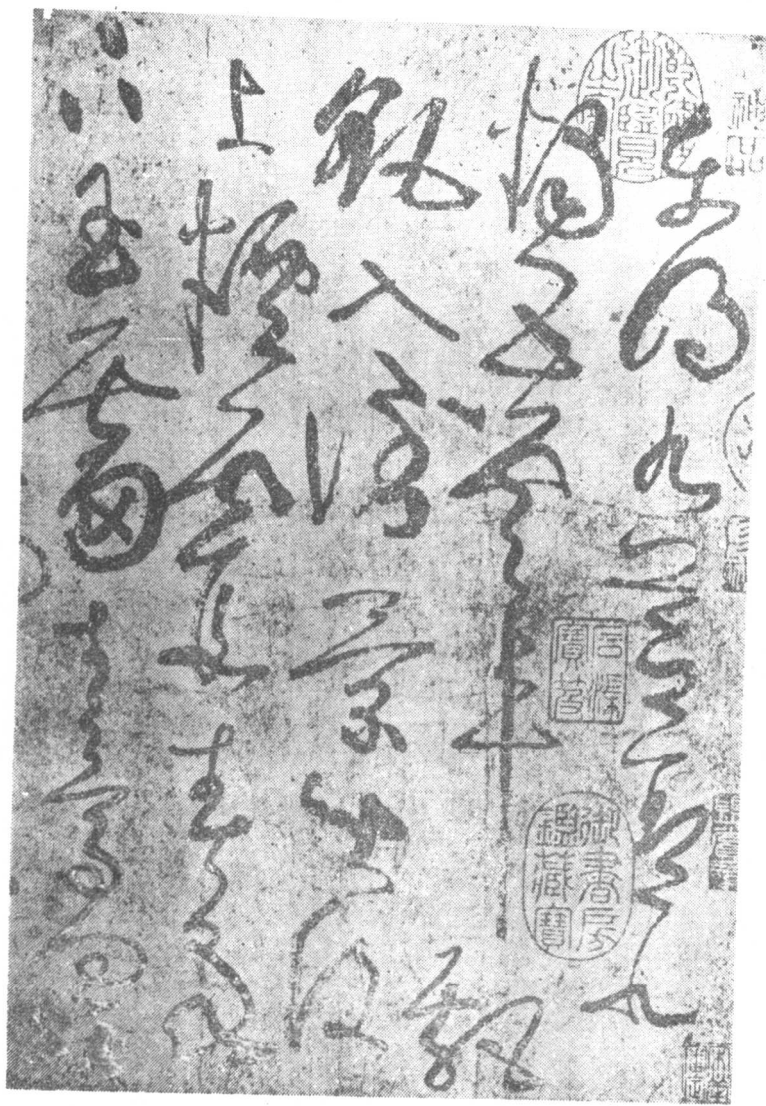 東明九芝蓋北
燭五雲車飄
飖入倒景出沒
上煙霞春泉
下玉霤青鳥向
神品
乾隆御覽之寶
石渠寶笈
御書房鑑藏寶